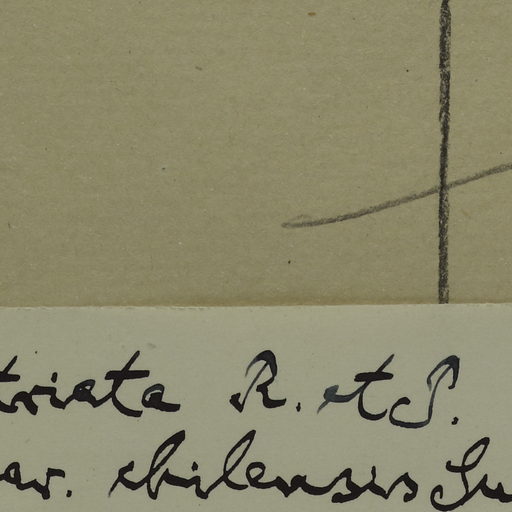 triata R. et P.
ar. chilensis Su